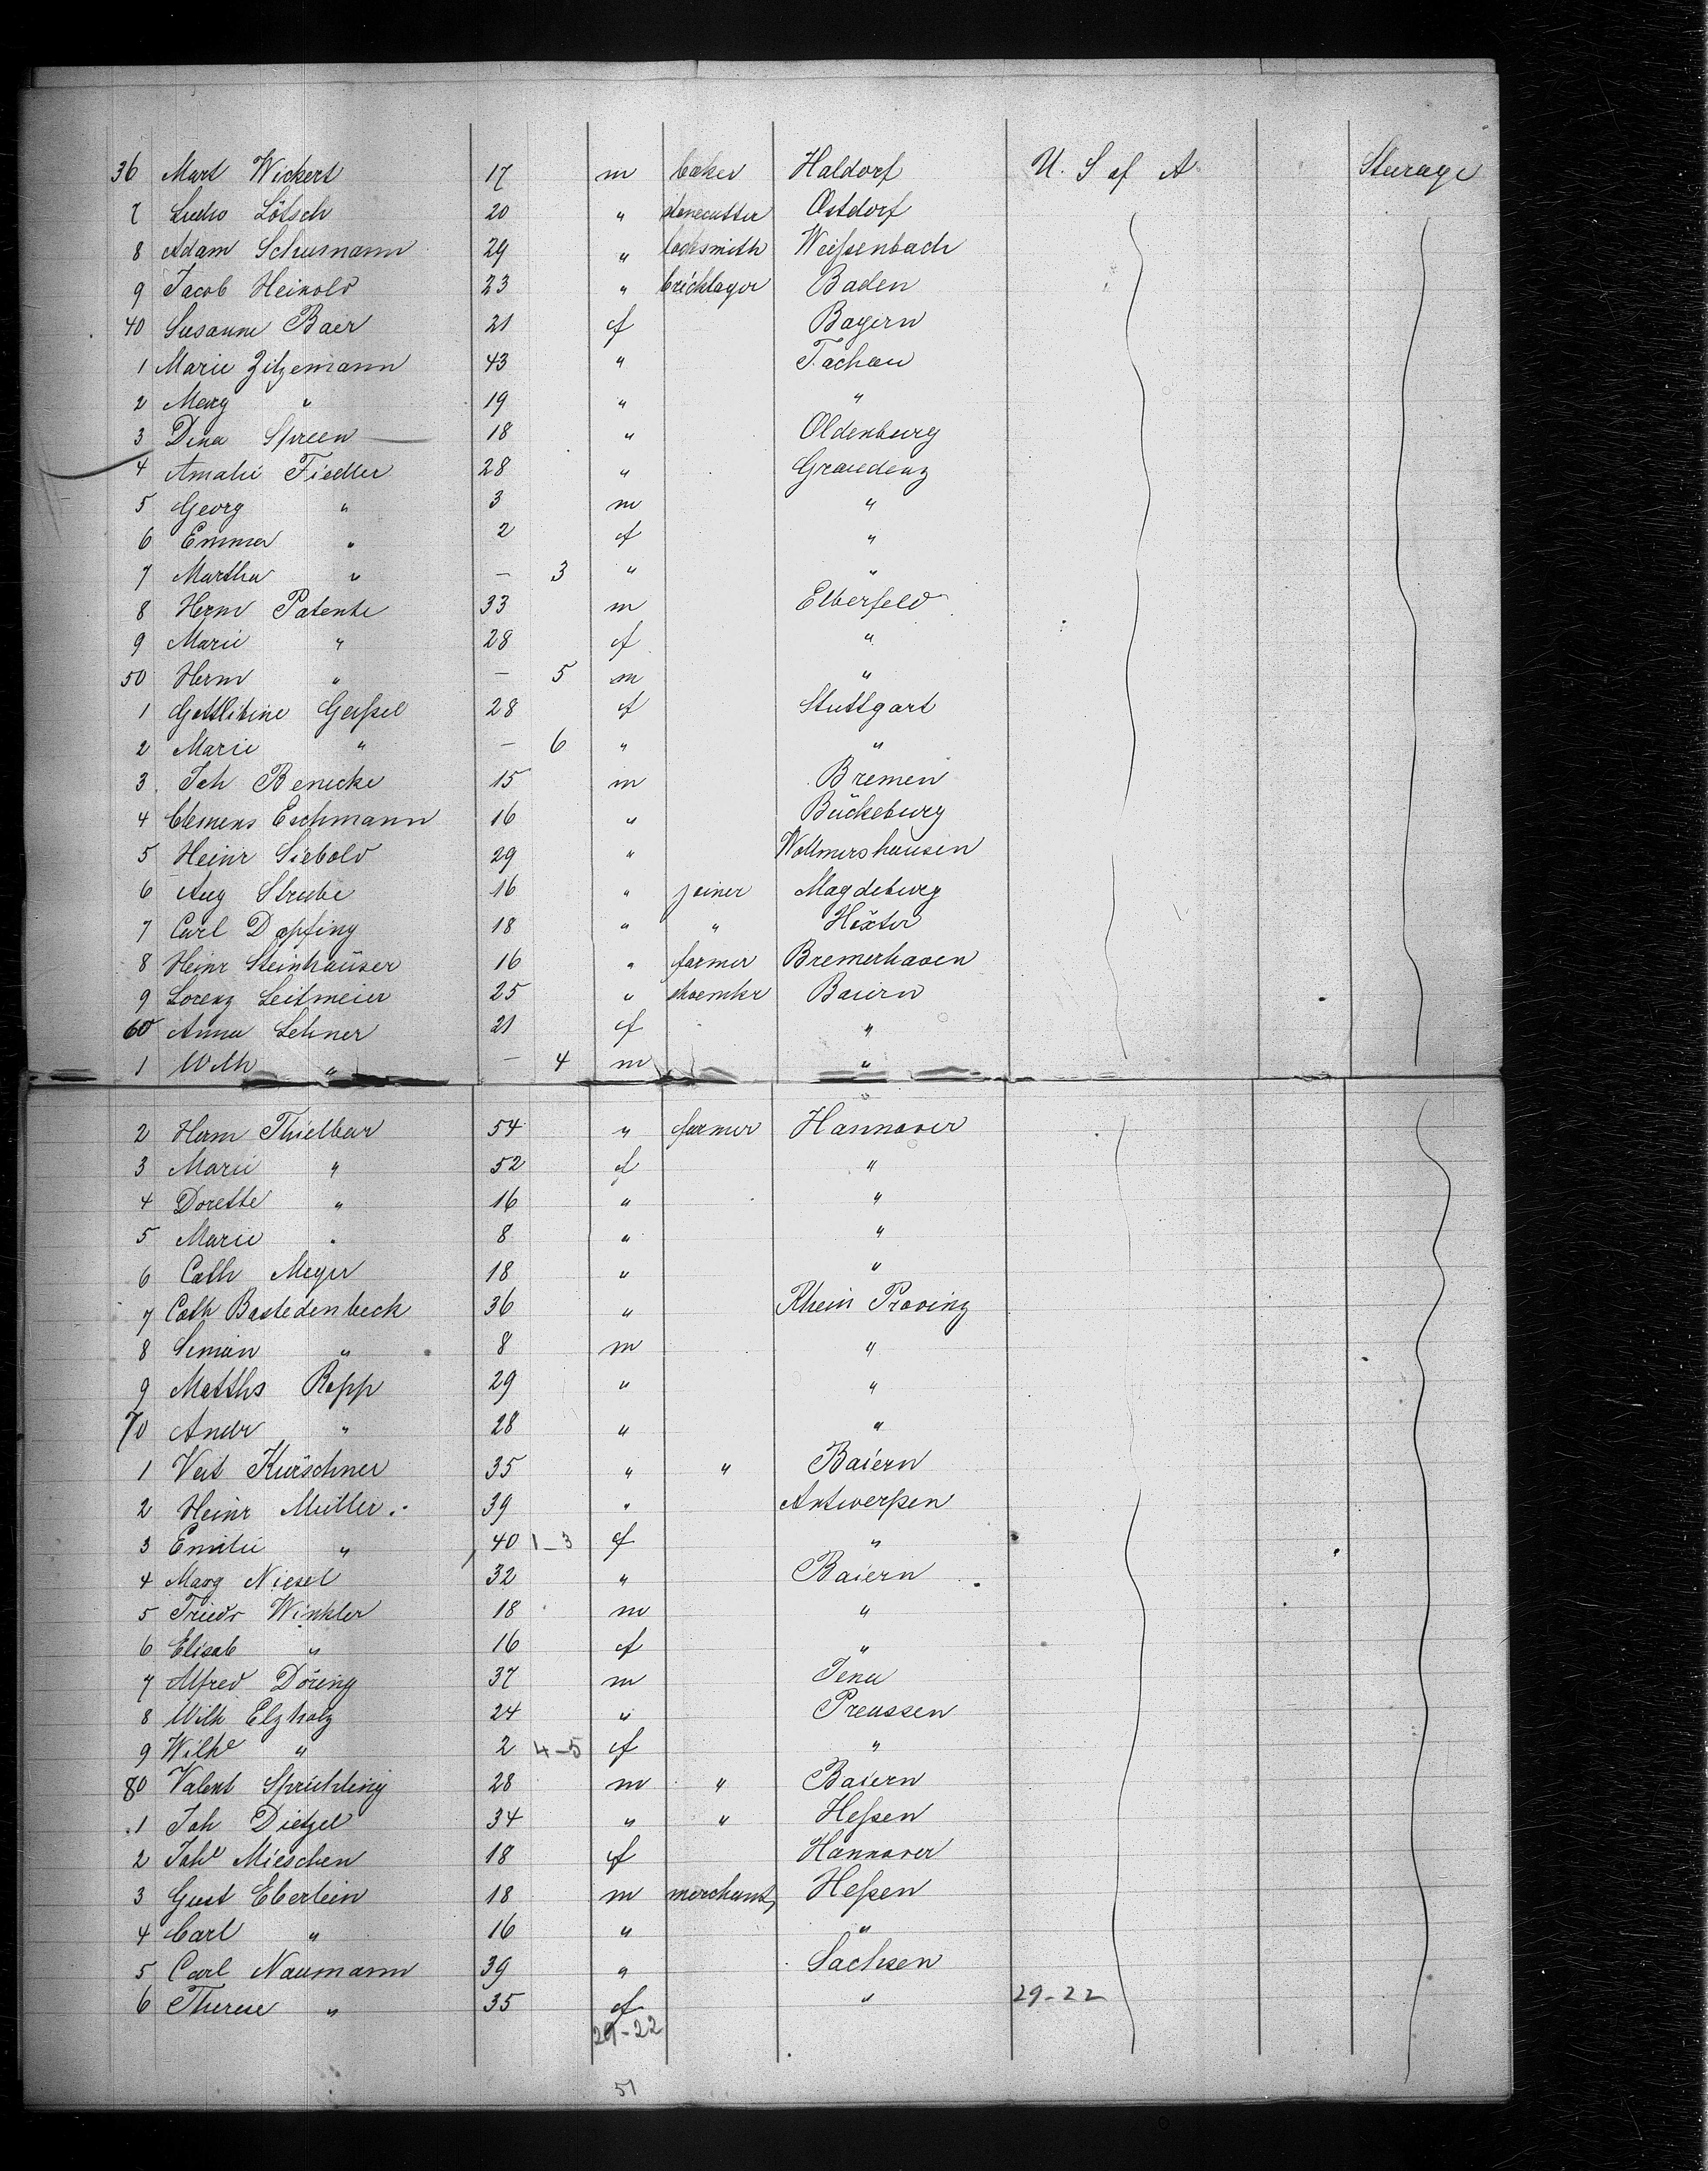 36 Mart Wickert 17 m baker Haldorf U. S of A Steerage
7 Ludw Lötsch 20 " stonecutter Ostdorf
8 Adam Schumann 29 " locksmith Weißenbach
9 Jacob Heinold 23 " bricklayer Baden
40 Susanne Baer 21 f Bayern
1 Marie Zitzemann 43 " Tachau
2 Marg " 19 " "
3 Dina Spreen 18 " Oldenburg
4 Amalie Fiedler 28 " Graudenz
5 Georg " 3 m "
6 Emma " 2 f "
7 Martha " — 3 " "
8 Herm Patente 33 m Elberfeld
9 Marie " 28 f "
50 Herm " — 5 m "
1 Gottlibine Geißel 28 f Stuttgart
2 Marie " — 6 " "
3 Joh Benecke 15 m Bremen
4 Clemens Eschmann 16 " Bückeburg
5 Heinr Siebold 29 " Wollmershausen
6 Aug Strube 16 " joiner Magdeburg
7 Carl Dopfing 18 " " Höxter
8 Heinr Steinhäuser 16 " farmer Bremerhaven
9 Lorenz Leitmeier 25 " shoemkr Baiern
60 Anna Lehner 21 f "
1 Wilh " — 4 m "
2 Herm Thielbar 54 " farmer Hannover
3 Marie " 52 f "
4 Dorette " 16 " "
5 Marie " 8 " "
6 Cath Meyer 18 " "
7 Cath Bastedenbeck 36 " Rhein Provinz
8 Simon " 8 m "
9 Matths Rapp 29 " "
70 Andr " 28 " "
1 Veit Kürschner 35 " " Baiern
2 Heinr Müller 39 " Antwerpen
3 Emilie " 40 1-3 f "
4 Marg Niesel 32 " Baiern
5 Friedr Winkler 18 m "
6 Elisab " 16 f "
7 Alfred Döring 37 m Jena
8 Wilh Elzholz 24 " Preussen
9 Wilhe " 2 4-5 f "
80 Valent Sprichling 28 m " Baiern
1 Joh Dietzel 34 " " Heßen
2 Johe Mieschen 18 f Hannover
3 Gust Eberlein 18 m merchants Heßen
4 Carl " 16 " "
5 Carl Naumann 39 " Sachsen
6 Therese " 35 f " 29-22
29-22
51